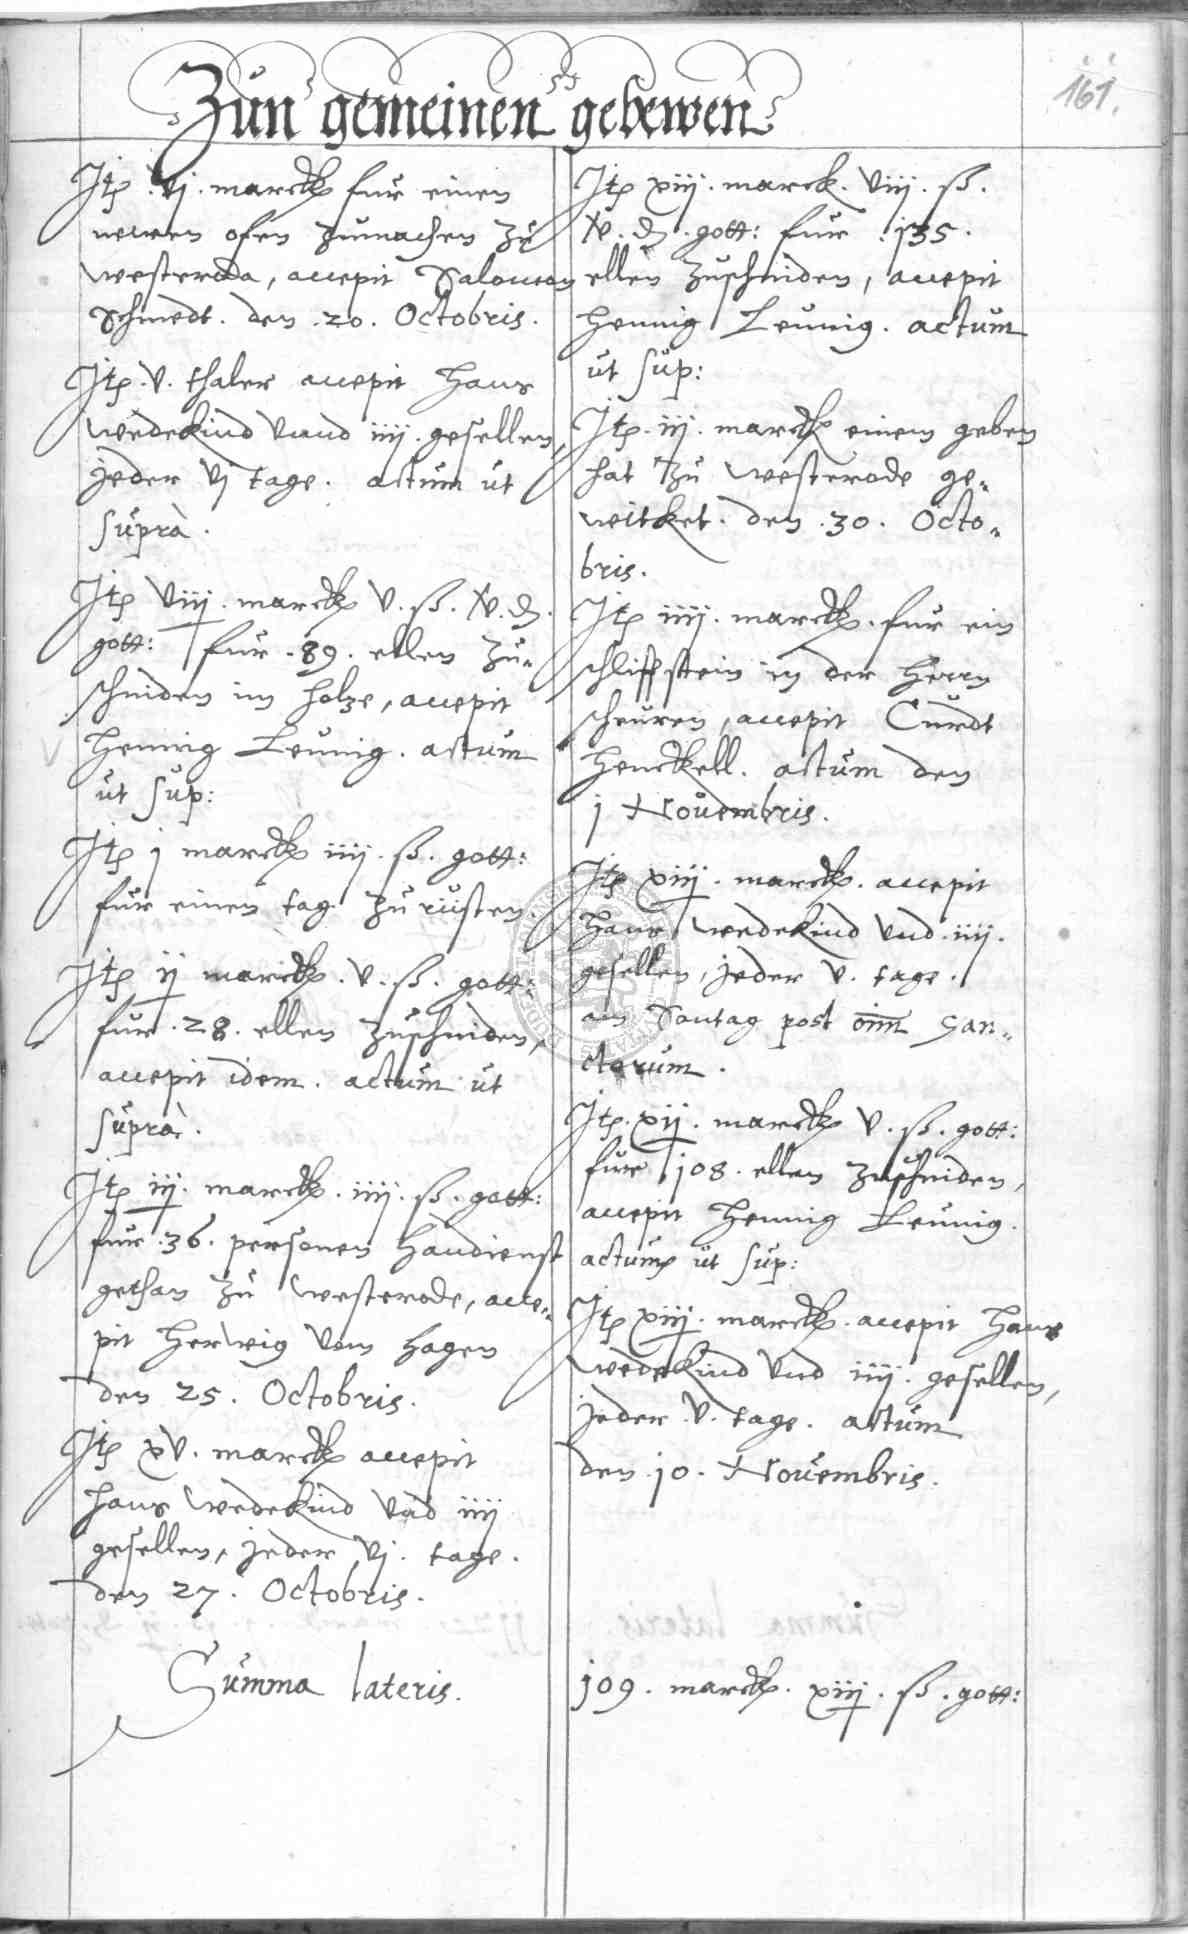 Zun gemeinen gebewen
161.
Itp .vj. marckh fur einen
newen ofen zumachen zu
westeroda, accepit Salomon
Schmedt. den .20. Octobris.
Itp .v. thaler accepit Hans
Wedekind vnnd iiij. gesellen,
jeder vj tage. actum ut
suprà.
Itp viij. marckh v. ß.
gott: fur .89. ellen zu„
schniden im holze, accepit
Hennig Leunig. actum
ut sup:
Itp j marckh iiij. ß. gott:
fur einen tag zu rusten.
Itp ij marckh. v. ß. gott:
fur .28. ellen zuschniden,
accepit idem. actum ut
suprà.
Itp iij. marckh. iiij. ß. gott:
fur .36. personen handienst
gethan zu westerode, acce„
pit Herwig vom Hagen
den 25. Octobris.
Itp xv. marckh accepit
Hans Wedekind vnd iiij
gesellen, jeder vj. tage.
den 27. Octobris.
Summa lateris.
Itp xiij. marck. viij. ß.
gott: fur .135.
ellen zuschniden, accepit
Hennig Leunig. actum
ut sup:
Itp. iij. marckh einem geben
hat zu westerode ge„
weitket. den .30. Octo„
bris.
Itp iiij. marckh. fur ein
schliffstein in der Herrn
scheuren, accepit Curdt
Henckell. actum den
j Novembris.
Itp xiij. marckh. accepit
Hans Wedekind vnd .iiij.
gesellen, jeder v. tage.
am Sontag post oim̄ san„
ctorum.
Itp. xij. marckh v. ß. gott:
fur 108. ellen zuschniden,
accepit Hennig Leunig.
actump ut sup:
Itp xiij. marckh. accepit Hans
Wedekind vnd iiij. gesellen,
jeder .v. tage. actum
den .10. Novembris.
109. marckh. xiij. ß. gott: